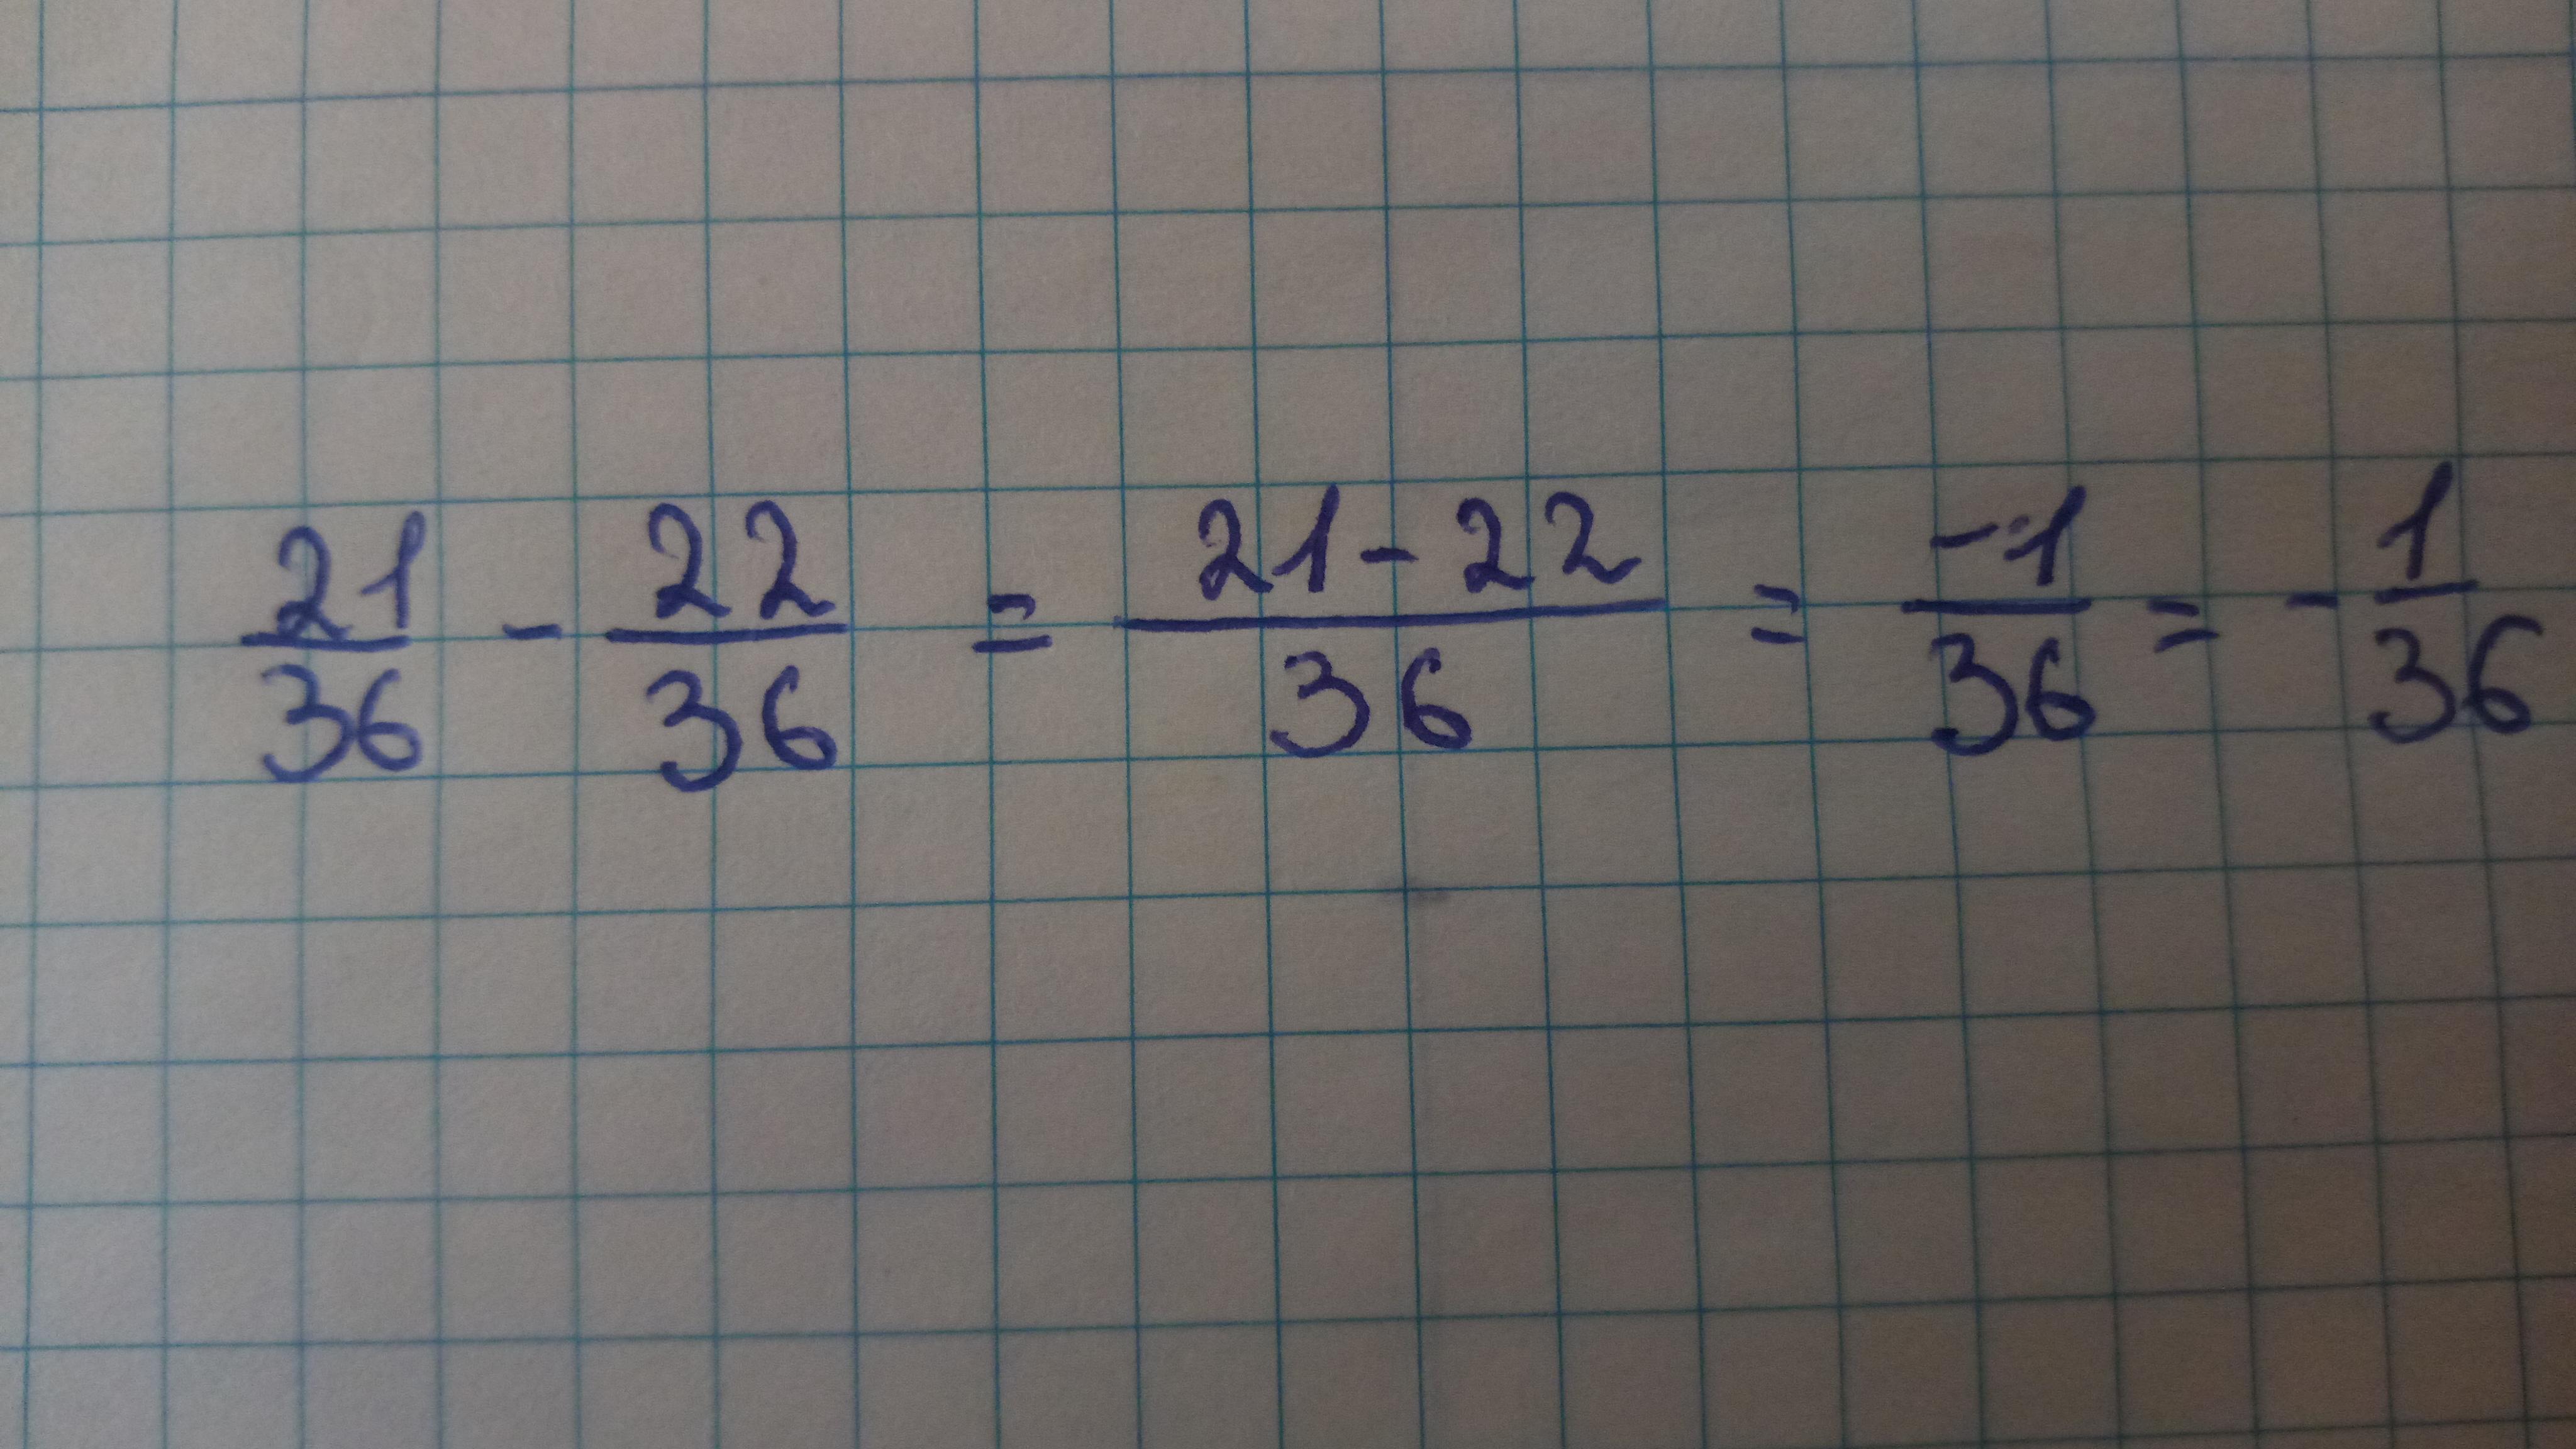 21/36 - 22/36 = (21-22)/36 = -1/36 = - 1/36